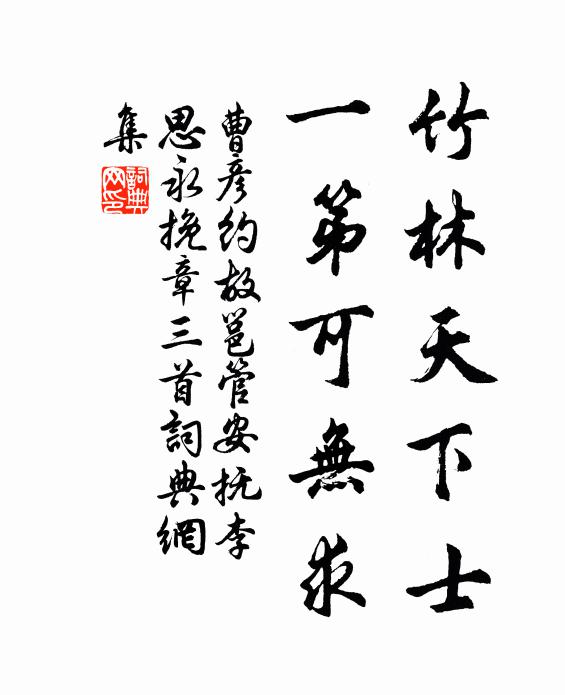 竹林天下士
一第可無求
曹彦約故邕管安抚李
思永挽章三首詞典網
集
詞典
网印